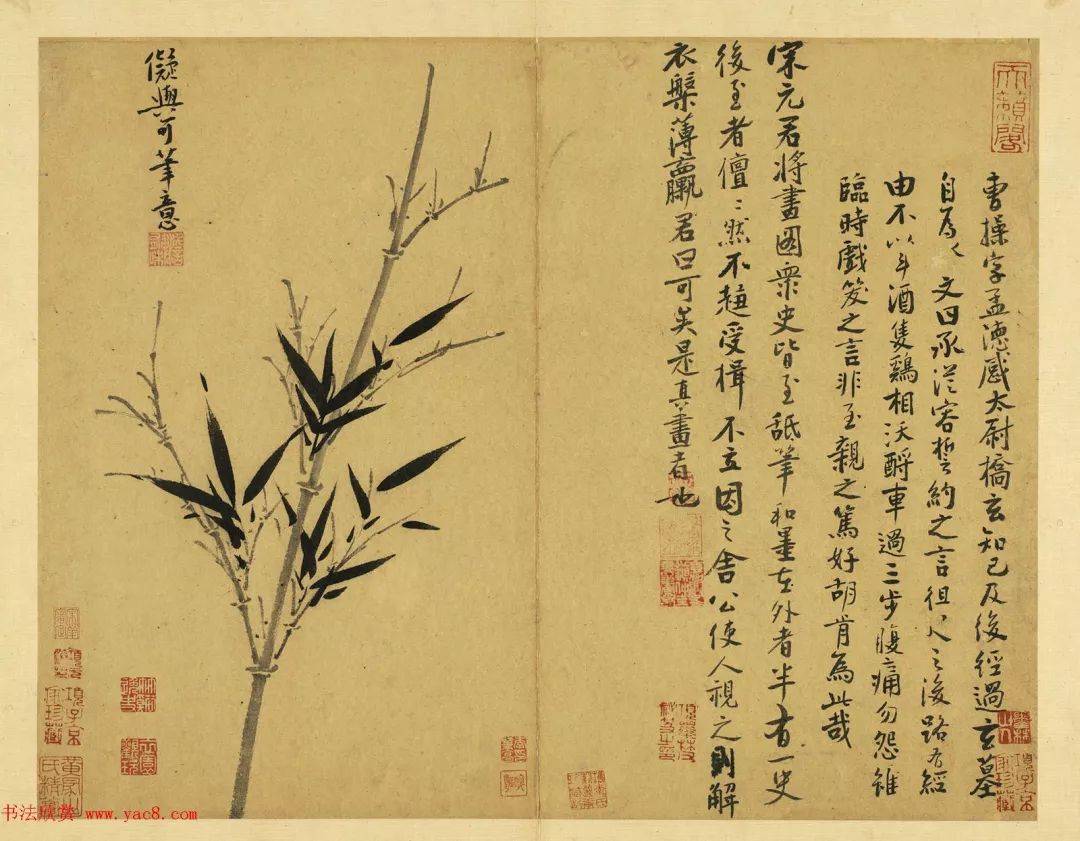 天籟閣
曹操字孟德感太尉橋玄知己及後經過玄墓
自為之文曰承從容誓約之言徂之後路有經
由不以斗酒隻鷄相沃酹車過三步腹痛勿怨雖
臨時戲笑之言非至親之篤好胡肯為此哉
宋元君將畫圖衆史皆至舐筆和墨在外者半有一史
後至者儃〻然不趨受揖不立因之舍公使人視之則解
衣槃薄臝君曰可矣是真畫者也
儗與可筆意
項子京家珍藏
項子京家珍藏
书法欣赏 www.yac8.com